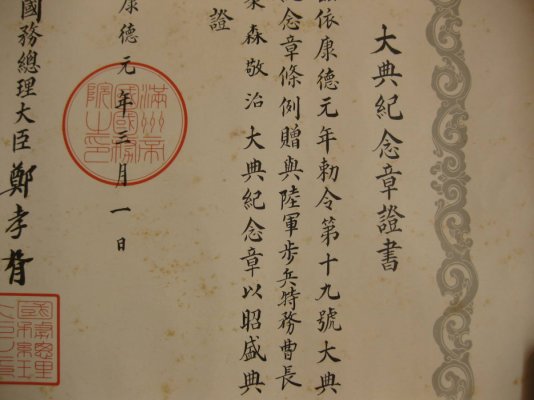 大典紀念章證書
依康德元年勅令第十九號大典
念章條例贈與陸軍步兵特務曹長
森敬治大典紀念章以昭盛典
證
康德元年三月一日
滿州帝
國國務
院之印
國務總理大臣鄭孝胥